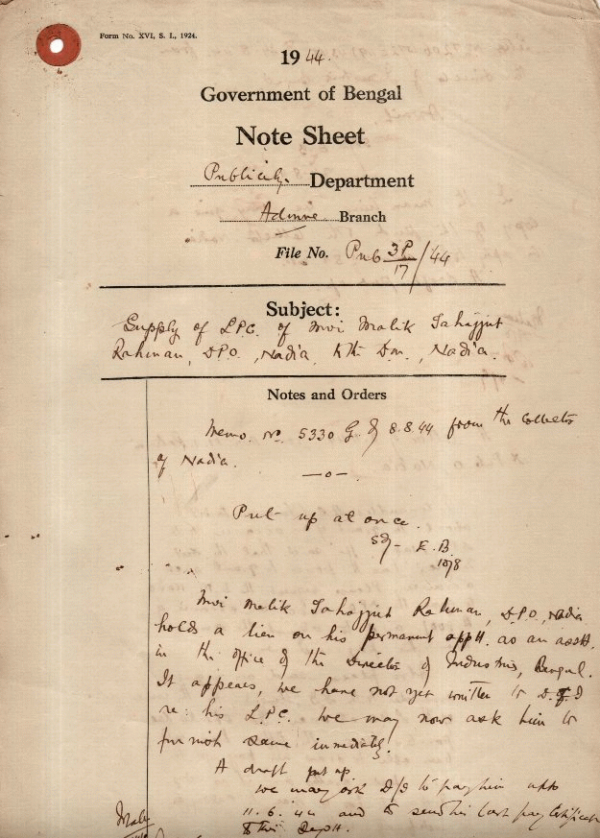 Form No. XVI, S. I., 1924.
1944.
Government of Bengal
Note Sheet
Publicity. Department
Branch
File No. Pub 3P/17/44
Subject:
Supply of L.P.C. of Mvi Malik Tahajjut
Rahman, D.P.O., Nadia to the Dm., Nadia.
Notes and Orders
Memo. no. 5330 G of 8.8.44 from the Collector
of Nadia.
—o—
Put up at once.
Sd/- E.B.
10/8
Mvi Malik Tahajjut Rahman, D.P.O, Nadia
holds a lien on his permanent appt. as an asstt.
in the office of the Director of Industries, Bengal.
It appears, we have not yet written to D. of I
re: his L.P.C. We may now ask him to
furnish same immediately.
A draft put up.
We may ask D/I to pay him upto
11.6.44 and to send his last pay certificate
to this Deptt.